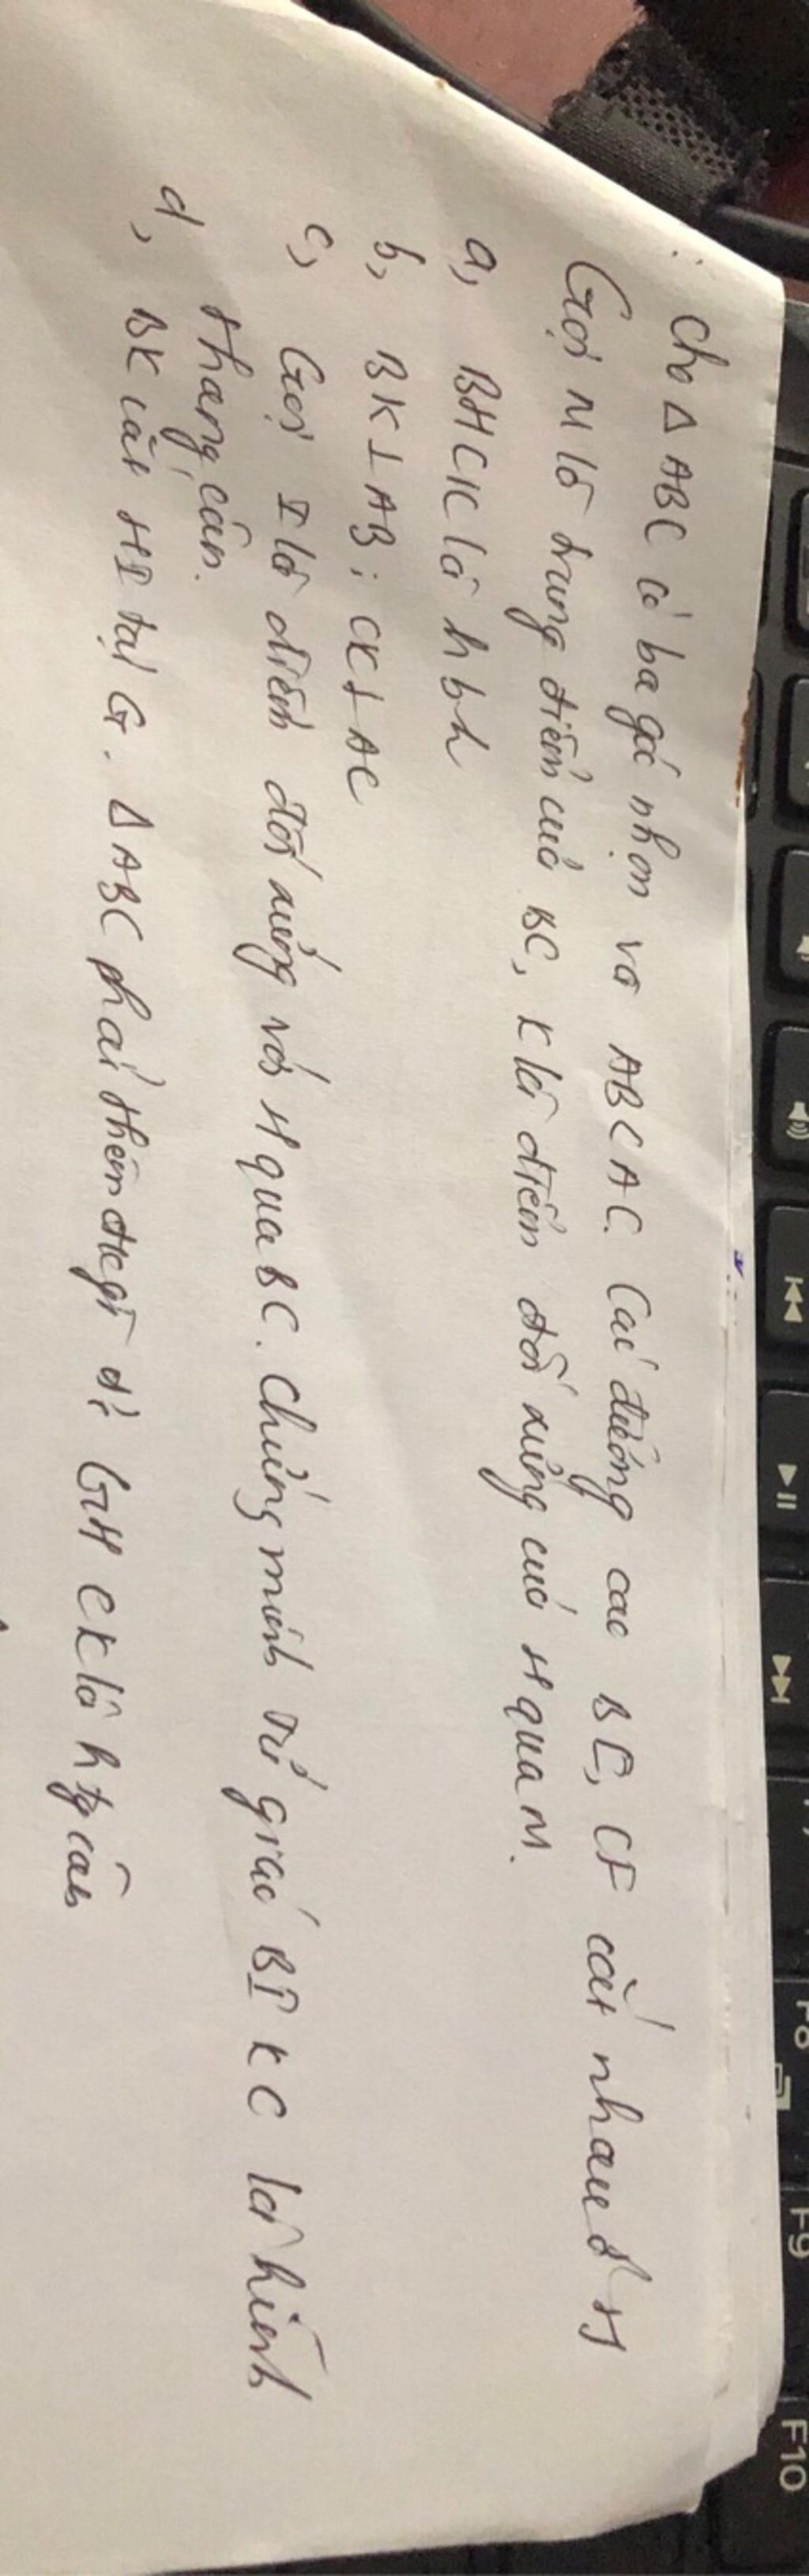 Cho Δ ABC có ba góc nhọn và AB<AC. Các đường cao BE, CF cắt nhau ở H
Gọi M là trung điểm của BC, K là điểm đối xứng của H qua M.
a, BHCK là hbh
b, BK⊥AB; CK⊥AC
c, Gọi I là điểm đối xứng với H qua BC. Chứng minh tứ giác BIKC là hình
thang cân.
d, BK cắt HI tại G. Δ ABC phải thêm đk gì để GHCK là htg cân
F8
F9
F10